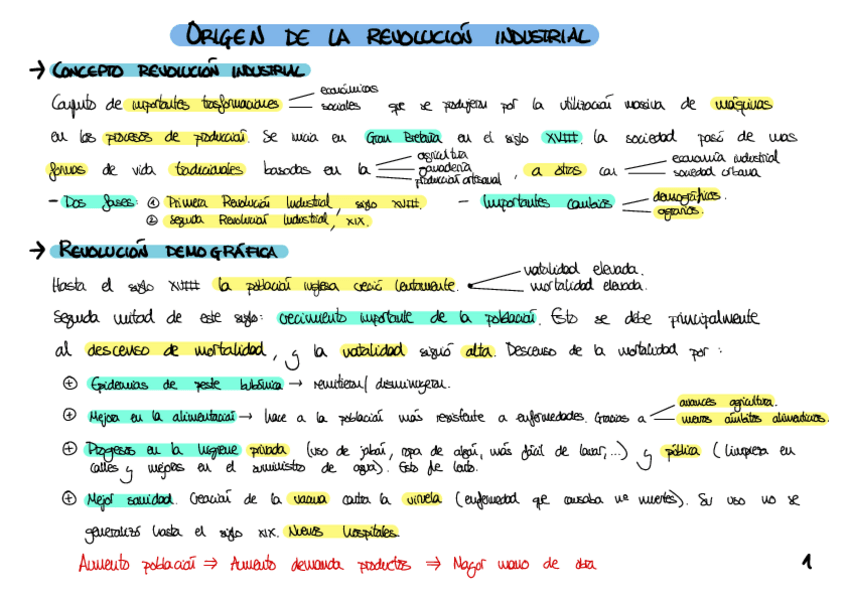 ORIGEN DE LA REVOLUCIÓN INDUSTRIAL
→ CONCEPTO REVOLUCIÓN INDUSTRIAL
económicas
Conjunto de importantes trasformaciones sociales que se produjeron por la utilización masiva de máquinas
en los procesos de producción. Se inicia en Gran Bretaña en el siglo XVIII. La sociedad pasó de unas
agricultura
formas de vida tradicionales basadas en la ganadería, a otras con economía industrial
producción artesanal sociedad urbana
- Dos fases: ① Primera Revolución Industrial, siglo XVIII. - Importantes cambios demográficos.
② Segunda Revolución Industrial, XIX. agrarios.
→ REVOLUCIÓN DEMOGRÁFICA
natalidad elevada.
Hasta el siglo XVIII la población inglesa creció lentamente. mortalidad elevada.
Segunda mitad de este siglo: crecimiento importante de la población. Esto se debe principalmente
al descenso de mortalidad, y la natalidad siguió alta. Descenso de la mortalidad por:
⊕ Epidemias de peste bubónica → remitieron/ disminuyeron.
avances agricultura.
⊕ Mejora en la alimentación → hace a la población más resistente a enfermedades. Gracias a nuevos ámbitos alimenticios.
⊕ Progresos en la higiene privada (uso de jabón, ropa de algodón, más fácil de lavar,...) y pública (limpieza en
calles y mejoras en el suministro de agua). Esto fue lento.
⊕ Mejor sanidad. Creación de la vacuna contra la viruela (enfermedad que causaba muertes). Su uso no se
generalizó hasta el siglo XIX. Nuevos hospitales.
Aumento población ⇒ Aumento demanda productos ⇒ Mayor mano de obra
1